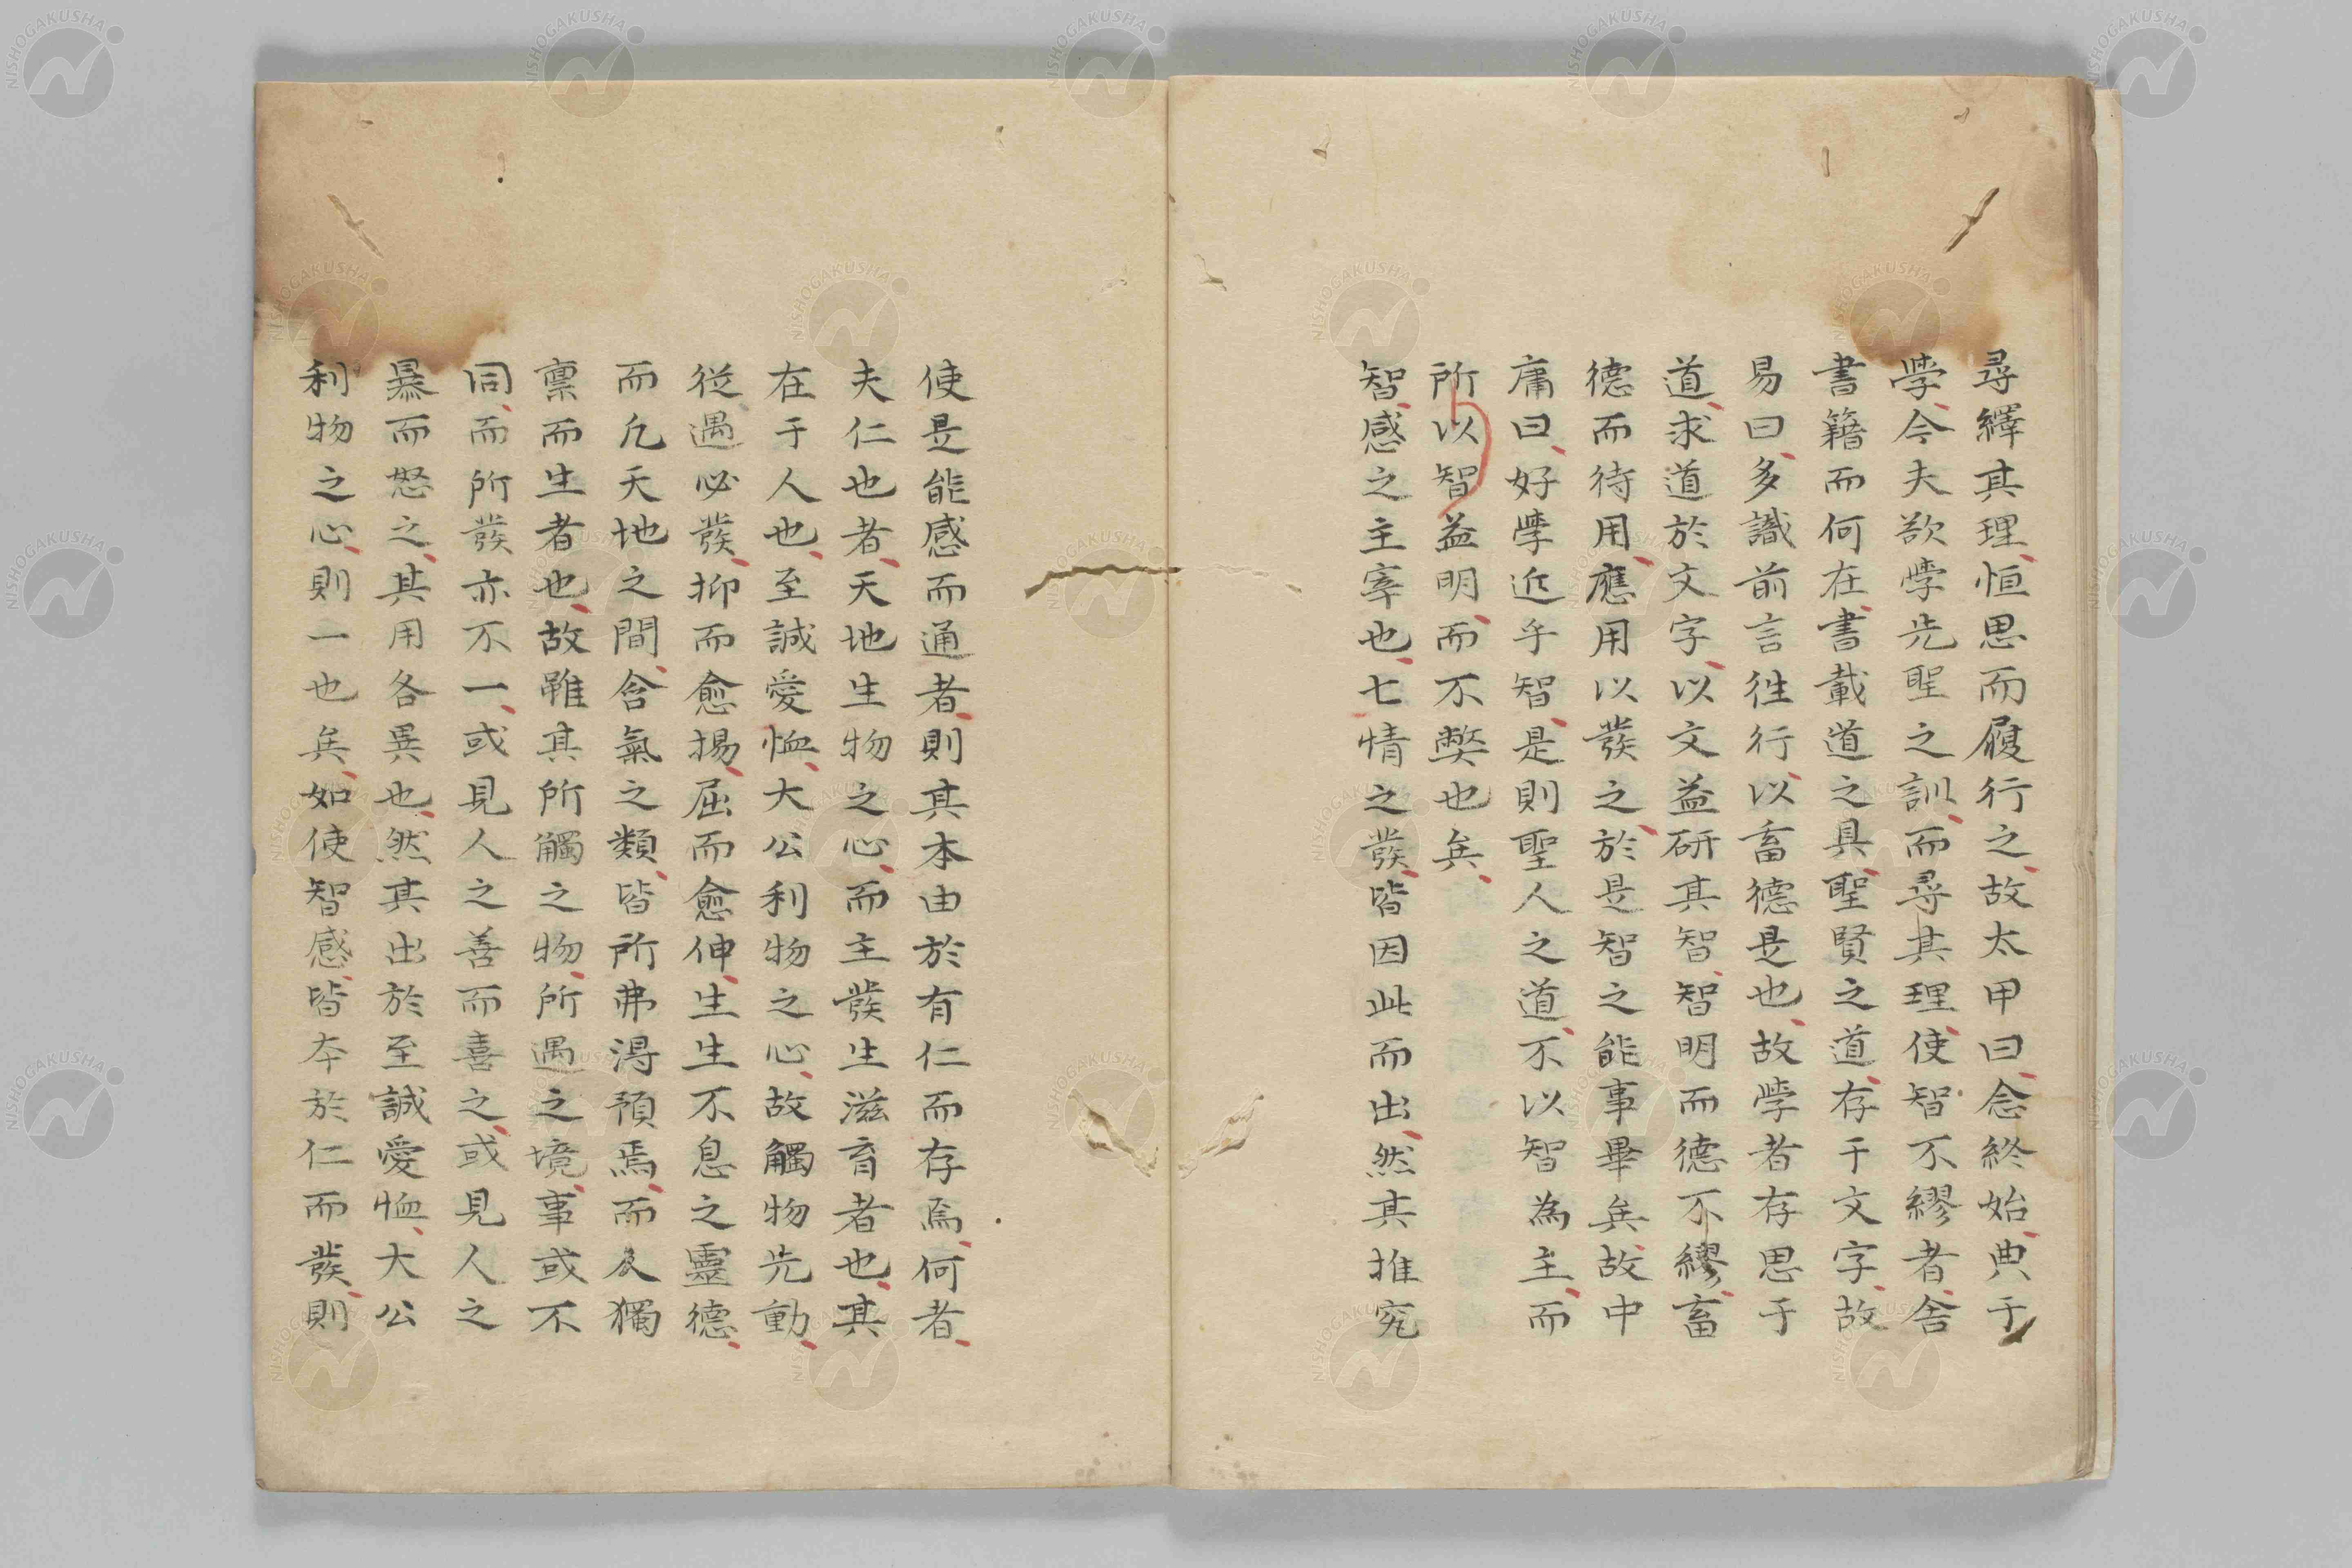 尋繹其理恒思而履行之故太甲曰念終始典于
學今夫欲學先聖之訓而尋其理使智不繆者舍
書籍而何在書載道之具聖賢之道存于文字故
易曰多識前言往行以畜德是也故學者存思于
道求道於文字以文益研其智智明而德不繆畜
德而待用應用以發之於是智之能事畢矣故中
庸曰好學近乎智是則聖人之道不以智為主而
所以智益明而不弊也矣
智感之主宰也七情之發皆因此而出然其推究
使是能感而通者則其本由於有仁而存焉何者
夫仁也者天地生物之心而主發生滋育者也其
在于人也至誠愛恤大公利物之心故觸物先動
從遇必發抑而愈揚屈而愈伸生生不息之靈德
而凢天地之間含氣之類皆所弗得預焉而人獨
禀而生者也故雖其所觸之物所遇之境事或不
同而所發亦不一或見人之善而喜之或見人之
暴而怒之其用各異也然其出於至誠愛恤大公
利物之心則一也矣如使智感皆本於仁而發則
NISHOGAKUSHA